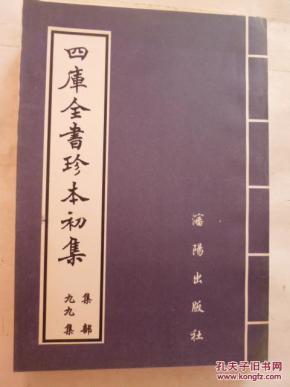 四庫全書珍本初集
集部
九九集
瀋陽出版社
孔夫子旧书网